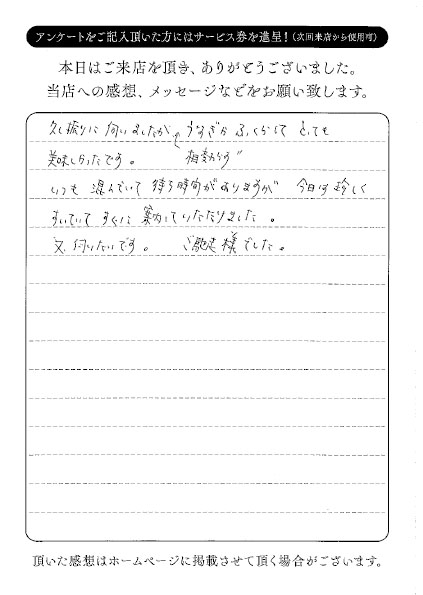 アンケートをご記入頂いた方にはサービス券を進呈！(次回来店から使用可)
本日はご来店を頂き、ありがとうございました。
当店への感想、メッセージなどをお願い致します。
久し振りに伺いましたが、うなぎがふっくらしてとても
美味しかったです。 相変わらず
いつも混んでいて待ち時間がありますが 今日は珍しく
すいていてすぐに案内していただけました。
又、伺いたいです。 ご馳走様でした。
頂いた感想はホームページに掲載させて頂く場合がございます。